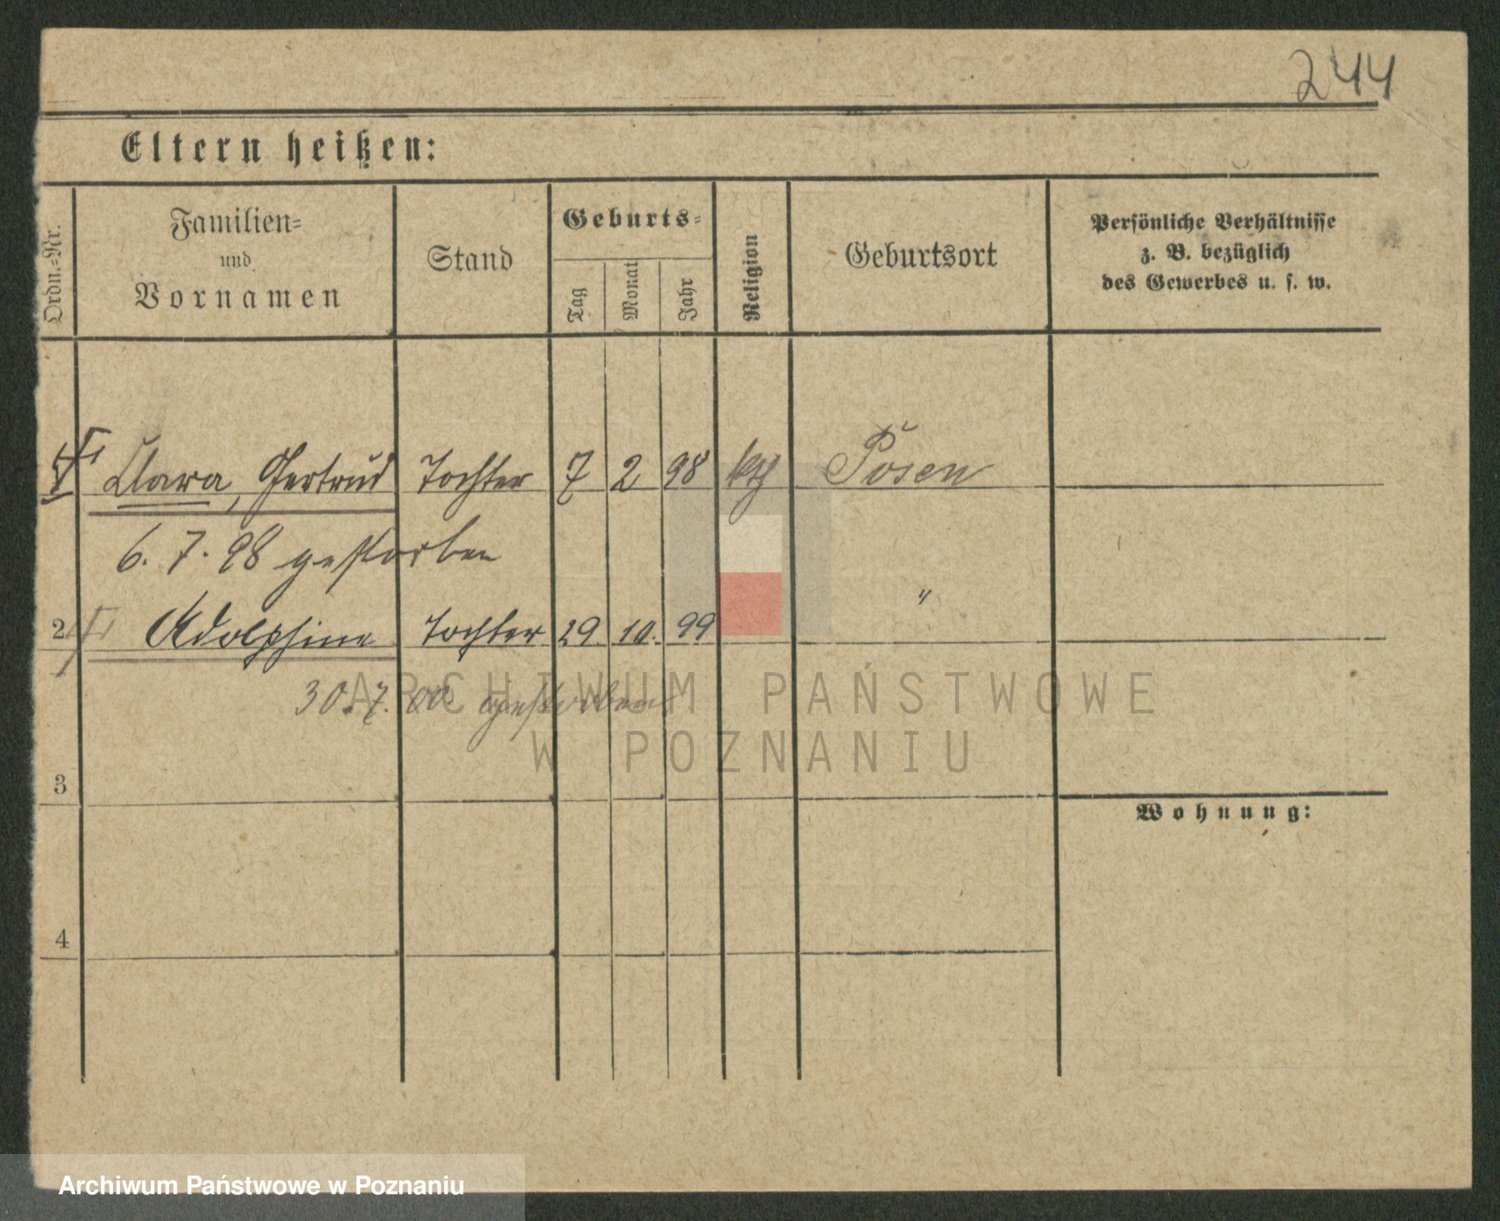 244
Eltern heißen:
Ordn.-Nr.
Familien-
und
Vornamen
Stand
Geburts-
Tag
Monat
Jahr
Religion
Geburtsort
Persönliche Verhältnisse
z. B. bezüglich
des Gewerbes u. s. w.
1 Clara, Gertrud Tochter 7 2 98 kth Posen
6. 7. 98 gestorben
2 Adolphine Tochter 29 10. 99 "
30.7.00 gestorben
ARCHIWUM PAŃSTWOWE
W POZNANIU
3
Wohnung:
4
Archiwum Państwowe w Poznaniu